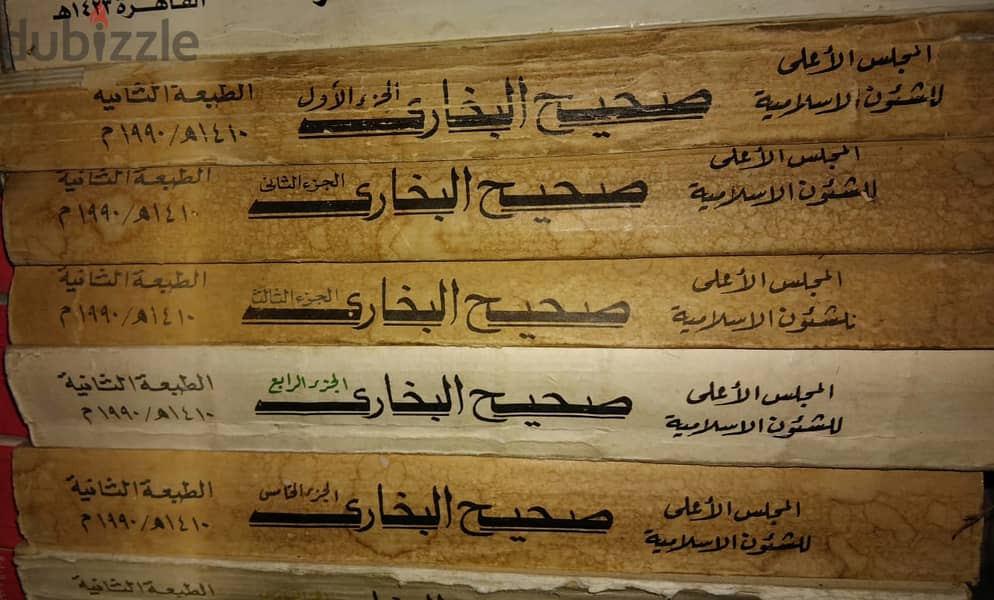 القاهرة ١٤٢٣هـ
dubizzle
المجلس الأعلى
للشئون الاسلامية
صحيح البخارى
الجزء الأول
الطبعة الثانية
١٤١٠هـ/١٩٩٠م
المجلس الأعلى
للشئون الاسلامية
صحيح البخارى
الجزء الثانى
الطبعة الثانية
١٤١٠هـ/١٩٩٠م
المجلس الأعلى
للشئون الاسلامية
صحيح البخارى
الجزء الثالث
الطبعة الثانية
١٤١٠هـ/١٩٩٠م
المجلس الأعلى
للشئون الاسلامية
صحيح البخارى
الجزء الرابع
الطبعة الثانية
١٤١٠هـ/١٩٩٠م
المجلس الأعلى
للشئون الاسلامية
صحيح البخارى
الجزء الخامس
الطبعة الثانية
١٤١٠هـ/١٩٩٠م
الطبعة الثانية